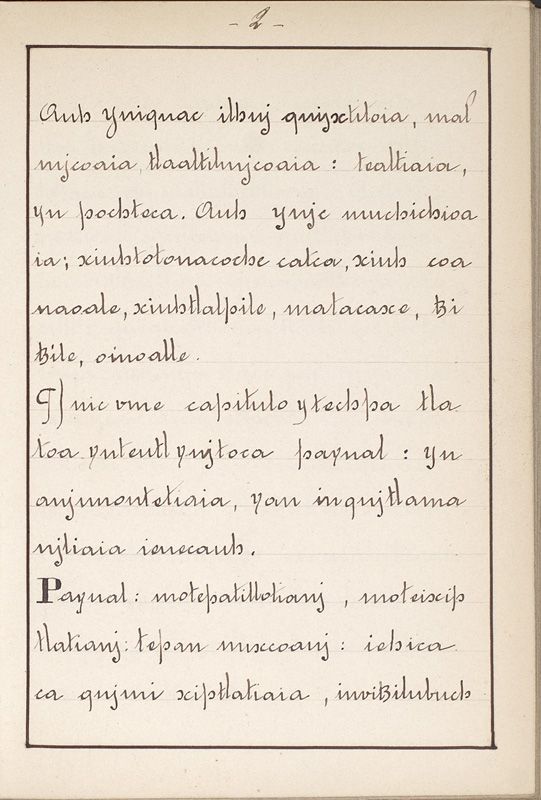 - 2 -
Auh yniquac ilhuj quijxtiloia, mal
mjcoaia, tlaaltilmjcoaia : tealtiaia,
yn pochteca. Auh ynje muchichioa
ia; xiuhtotonacoche catca, xiuh coa
naoale, xiuhtlalpile, matacaxe, tzi
tzile, oioalle.
¶) nic vme capitulo ytechpa tla
toa ynteutl ynjtoca paynal : yn
anjmontetiaia, yoan inqujtlama
njliaia ienecauh.
Paynal : motepatillotianj, moteixip
tlatianj : tepan mixcoanj : iehica
ca qujmi xiptlatiaia, invitzilubuch